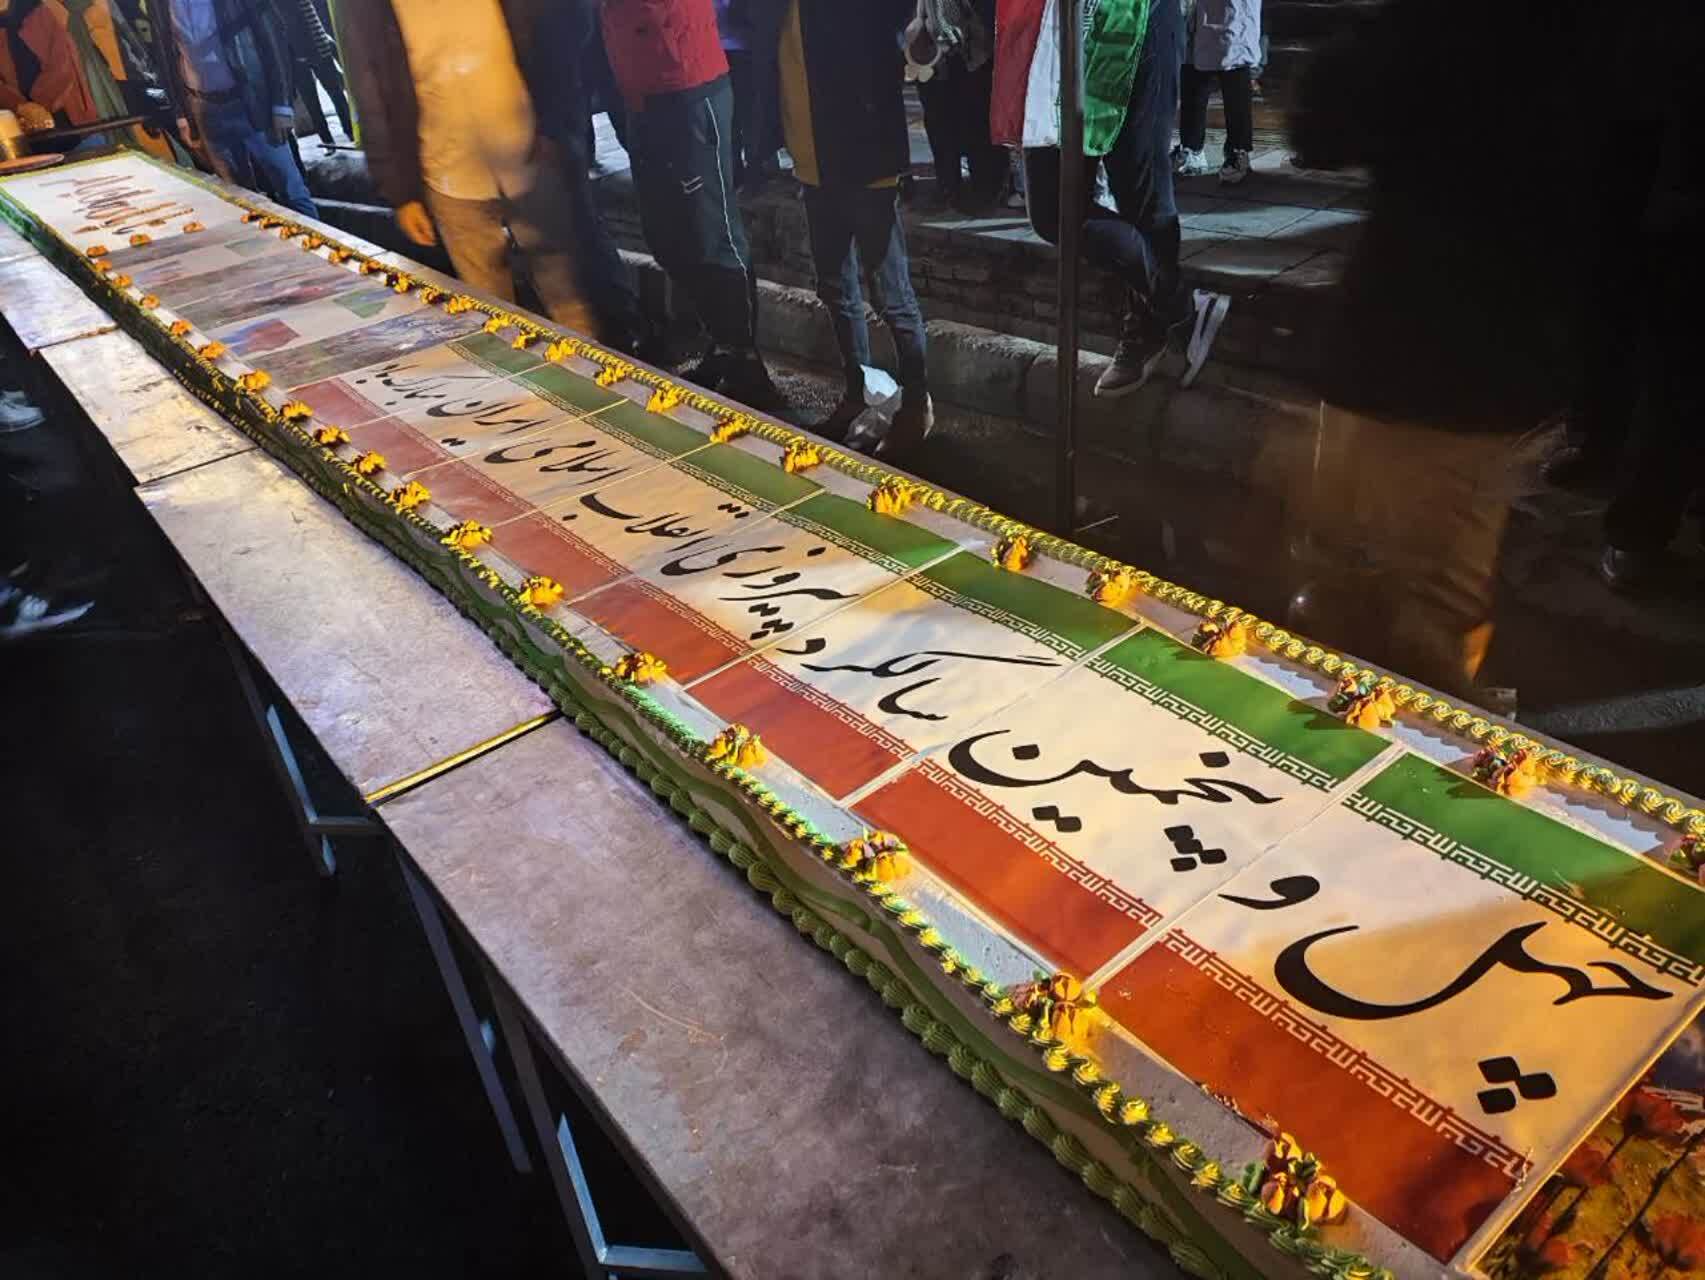 چهل و پنجمین سالگرد پیروزی انقلاب اسلامی ایران مبارک باد